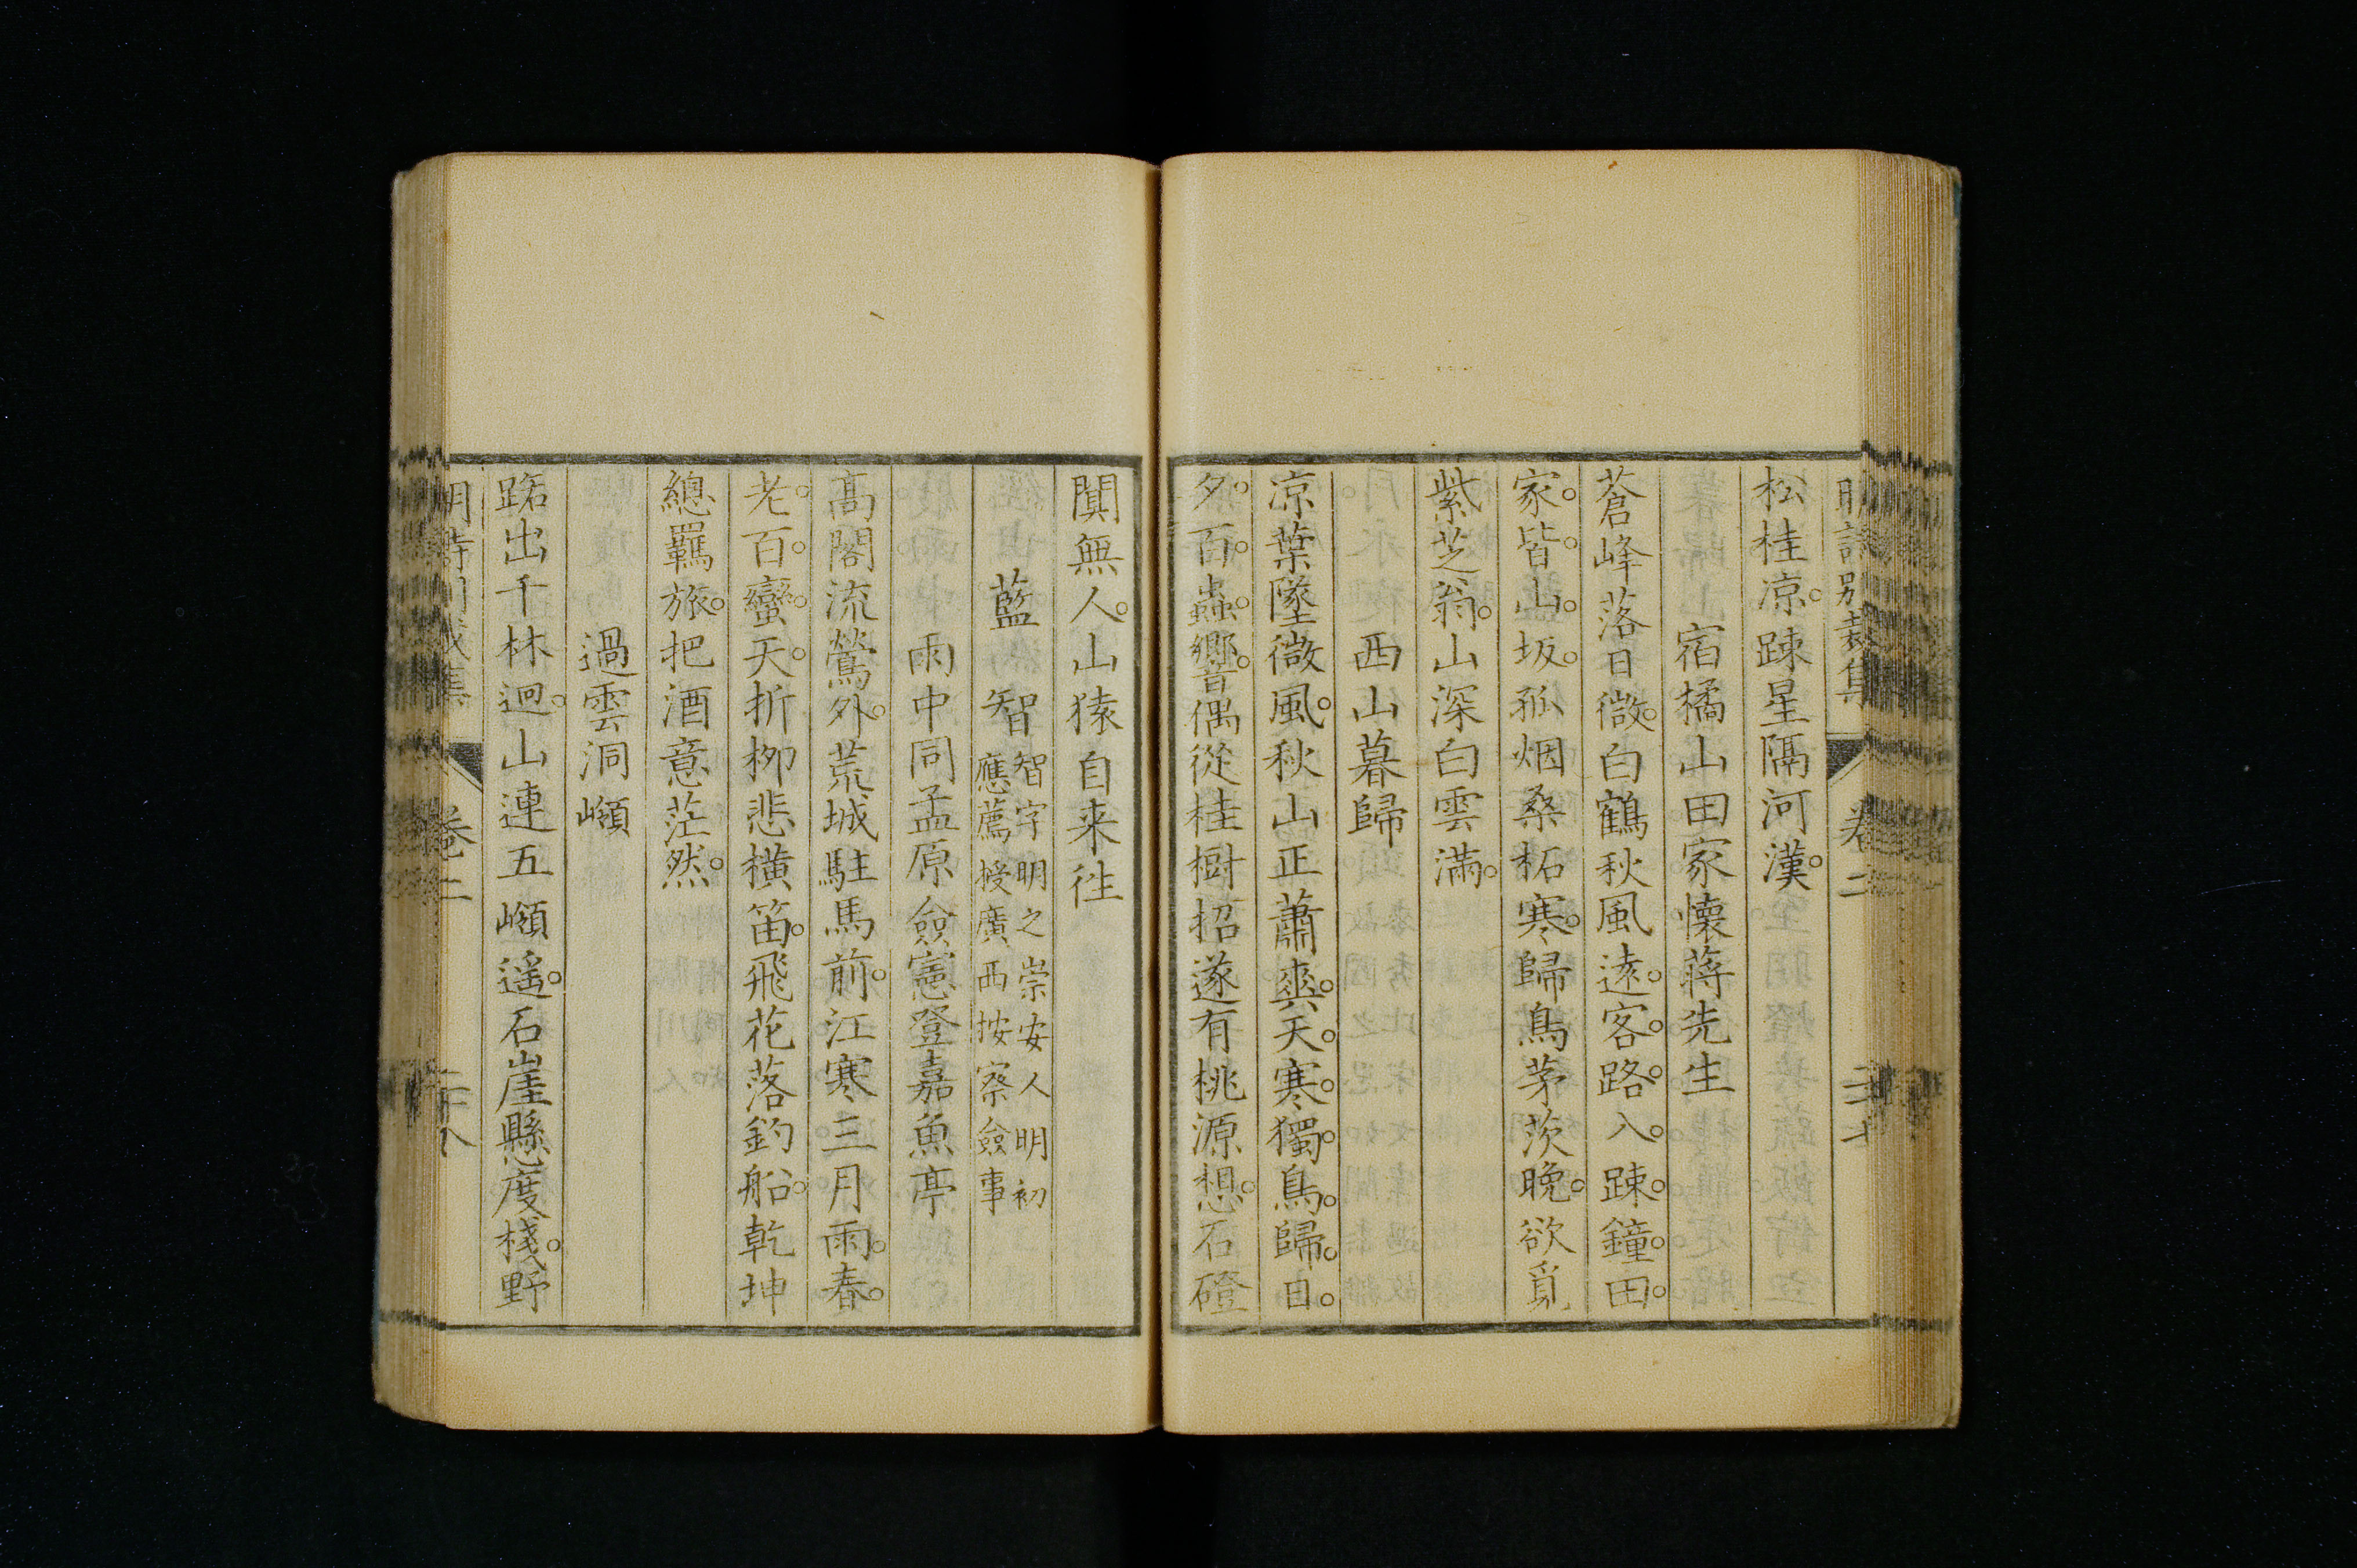 明詩別裁集 卷二 二十七
松桂凉。踈星隔河漢。
宿橘山田家懷蔣先生
蒼峰落日微。白鶴秋風逺。客。路。入。踈。鐘。田。
家。皆。山。坂。孤烟桑柘寒。歸鳥茅茨晚。欲覓
紫芝翁。山深白雲滿。
西山暮歸
凉葉墜微風。秋山正蕭爽。天。寒。獨。鳥。歸。日。
夕。百。蟲。響。偶從桂樹招遂有桃源想。石磴
闃無人。山猿自来徃
藍智 智字明之崇安人明初
應薦授廣西按察僉事
雨中同孟原僉憲登嘉魚亭
高閣流鶯外。荒城駐馬前。江寒三月雨。春。
老。百。蠻。天。折栁悲橫笛。飛花落釣船。乾坤
總羈旅。把酒意茫然。
過雲洞嶺
路出千林迥。山連五嶺遥。石崖懸度棧。野
明詩別裁集 卷二 二十八